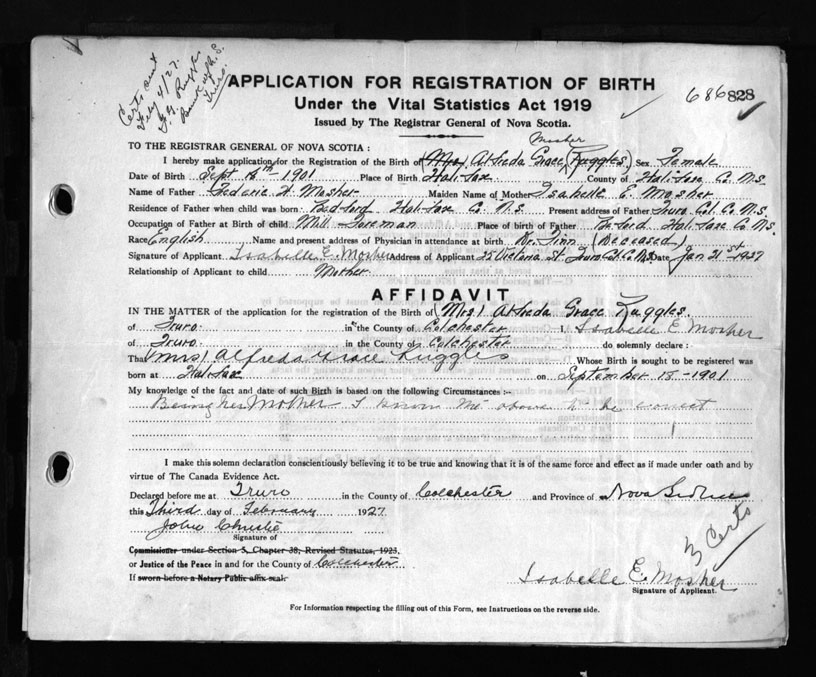 Certs sent
Feby 4/27.
APPLICATION FOR REGISTRATION OF BIRTH
686828
Under the Vital Statistics Act 1919
Issued by The Registrar General of Nova Scotia.
TO THE REGISTRAR GENERAL OF NOVA SCOTIA:
Mosher
I hereby make application for the Registration of the Birth of (Mrs) Alfreda Grace (Ruggles) Sex Female
Date of Birth Sept 1901 Place of Birth Halifax County of Halifax Co N.S.
Name of Father W. Mosher Maiden Name of Mother Isabelle E. Mosher
Residence of Father when child was born Bedford Halifax Co. N.S. Present address of Father Truro Col. C. N.S.
Occupation of Father at Birth of child Mill Foreman Place of birth of Father Halifax Co N.S.
Race English Name and present address of Physician in attendance at birth Dr. Finn (Deceased)
Signature of Applicant Isabelle E. Mosher Address of Applicant 25 Victoria St. Truro Col. C. N.S. Date Jan 21st 1927
Relationship of Applicant to child Mother
AFFIDAVIT
IN THE MATTER of the application for the registration of the Birth of (Mrs) Alfreda Grace Ruggles.
of Truro. in the County of Colchester I, Isabelle E Mosher
of Truro. in the County of Colchester do solemnly declare:
That (Mrs) Alfreda Grace Ruggles Whose Birth is sought to be registered was
born at Halifax on September 18-1901
My knowledge of the fact and date of such Birth is based on the following Circumstances:-
Being her Mother I know the above to be correct
I make this solemn declaration conscientiously believing it to be true and knowing that it is of the same force and effect as if made under oath and by
virtue of The Canada Evidence Act.
Declared before me at Truro in the County of Colchester and Province of Nova Scotia
this Third day of February 1927
John Christie
Signature of
Commissioner under Section 5, Chapter 38, Revised Statutes, 1923,
or Justice of the Peace in and for the County of Colchester
3 Certs
If sworn before a Notary Public affix seal.
Isabelle E. Mosher
Signature of Applicant.
For Information respecting the filling out of this Form, see Instructions on the reverse side.